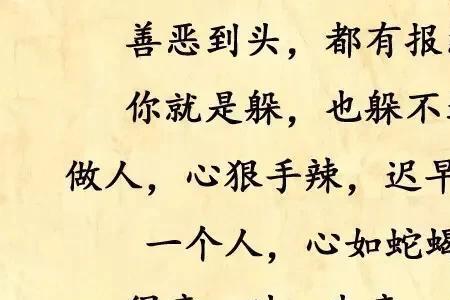 善恶到头，都有报
你就是躲，也躲不
做人，心狠手辣，迟早
一个人，心如蛇蝎